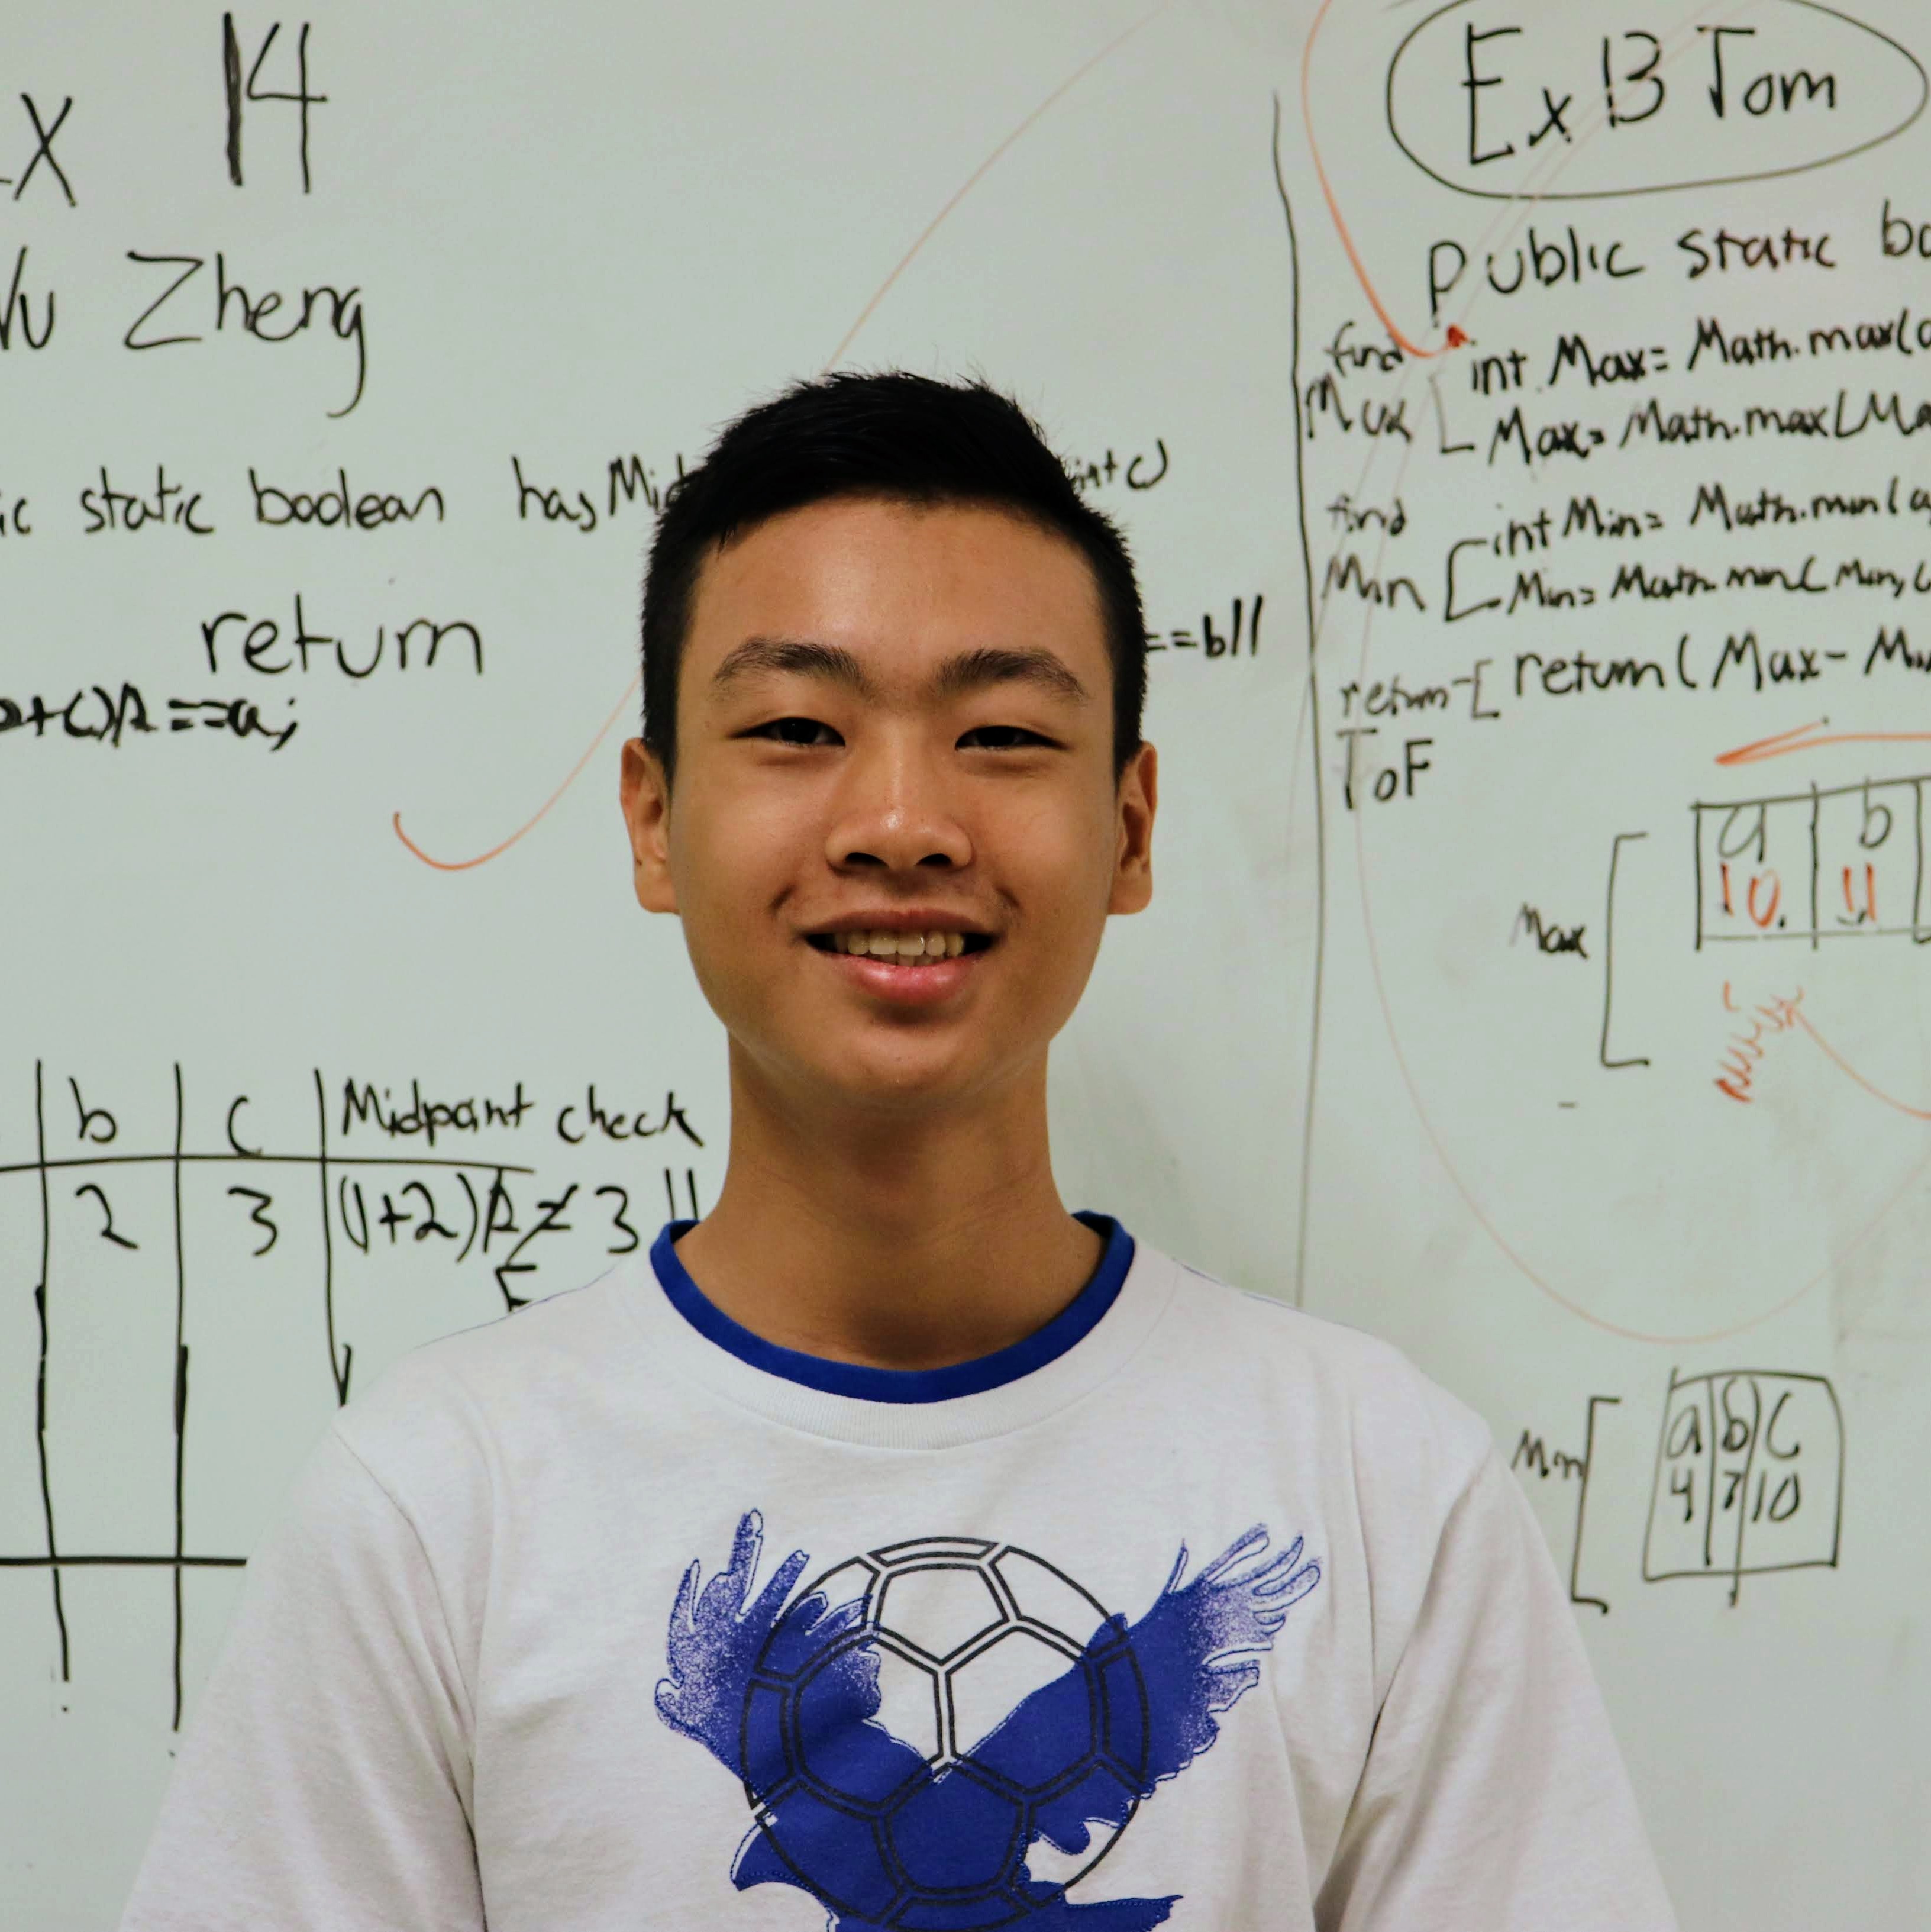 x 14
Zheng
static boolean has
return
==a;
==b||
b c Midpoint check
2 3 (1+2)/2 ≠ 3 ||
F
Ex 13 Tom
Public static
find
Max
int Max= Math.max(
Max= Math.max(
find
Min
int Min= Math.min(
Min= Math.min( Min,
return
return ( Max-
T o F
a b
Max
10. 11
Min
a b c
4 7 10